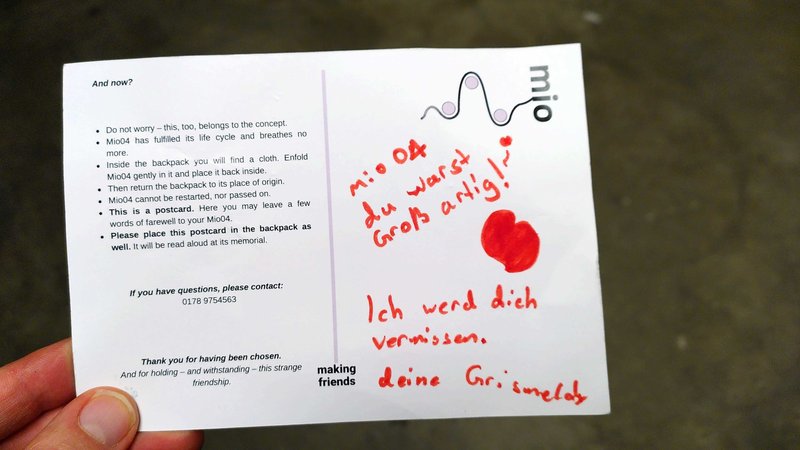 And now?
Do not worry – this, too, belongs to the concept.
Mio04 has fulfilled its life cycle and breathes no
more.
Inside the backpack you will find a cloth. Enfold
Mio04 gently in it and place it back inside.
Then return the backpack to its place of origin.
Mio04 cannot be restarted, nor passed on.
This is a postcard. Here you may leave a few
words of farewell to your Mio04.
Please place this postcard in the backpack as
well. It will be read aloud at its memorial.
If you have questions, please contact:
0178 9754563
Thank you for having been chosen.
And for holding – and withstanding – this strange
friendship.
making
friends
mio
mio 04
du warst
Groß artig!
Ich werd dich
vermissen.
deine